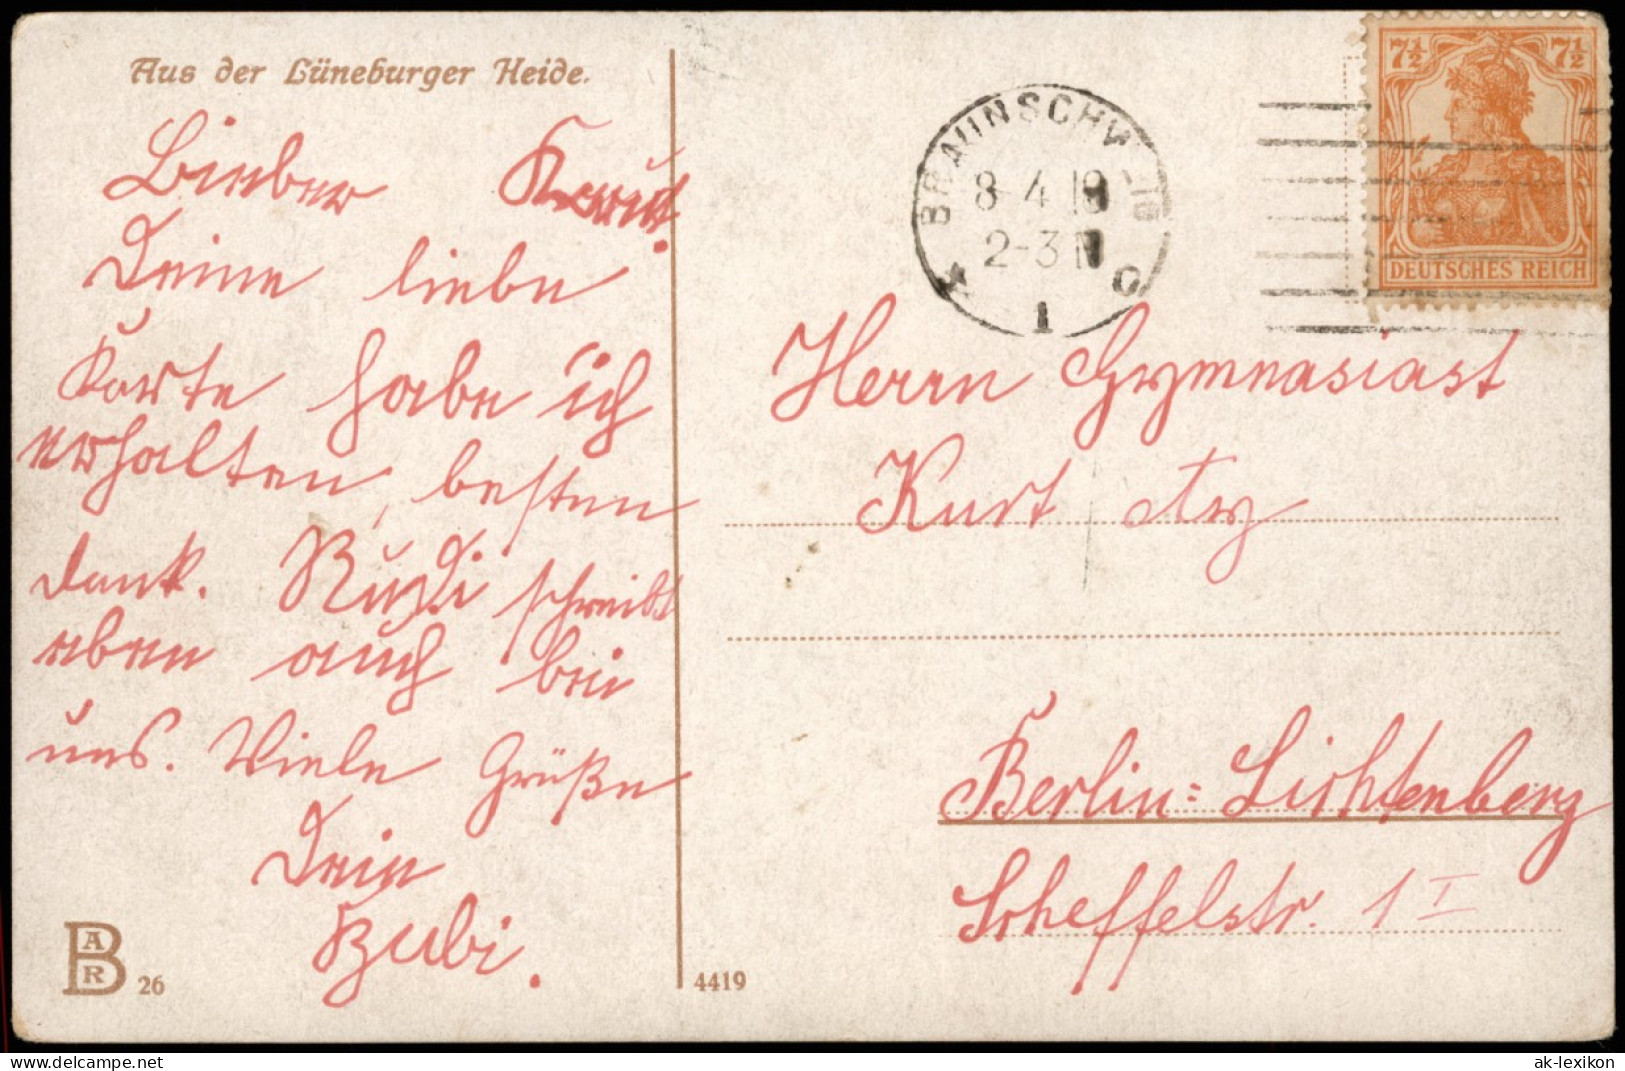 Aus der Lüneburger Heide.
Lieber Kurt.
Deine liebe
Karte habe ich
erhalten, besten
Dank. Rudi schreibt
eben auch bei
uns. Viele Grüße
Dein
Bubi.
A
B
R
26
4419
BRAUNSCHW IG
8-4 18
2-3 N
* 1 C
7½ 7½
DEUTSCHES REICH
Herrn Gymnasiast
Kurt
Berlin=Lichtenberg
Scheffelstr. 1 I
delcampe.net
ak-lexikon